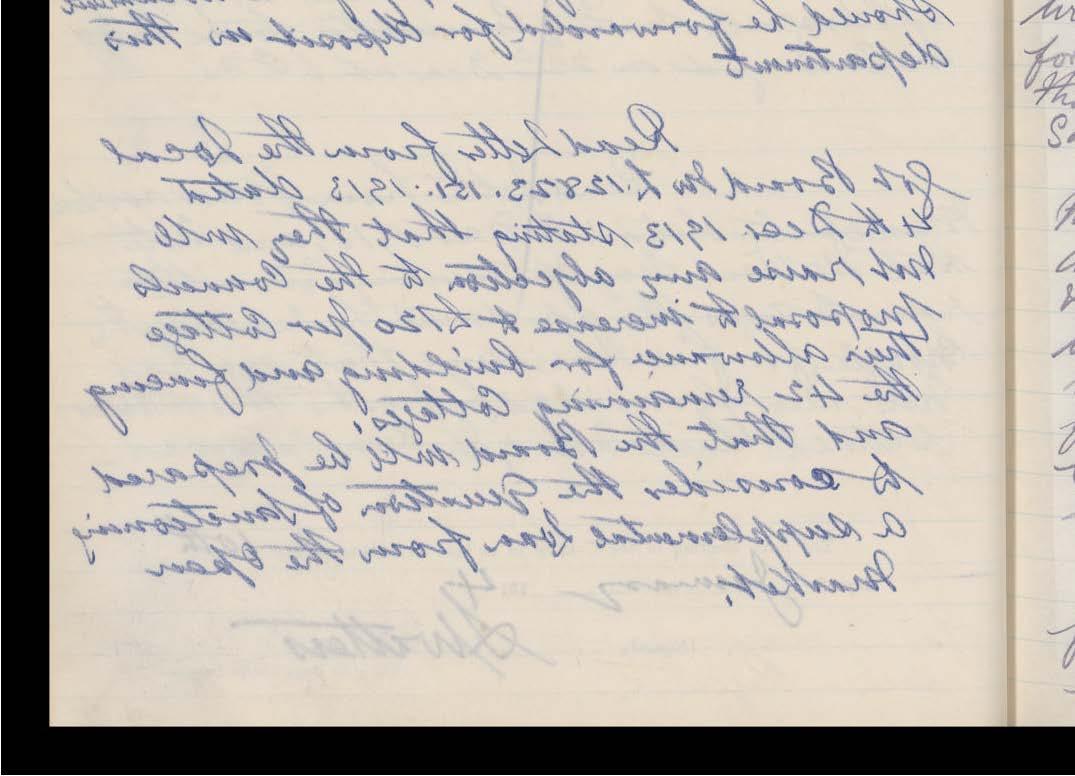 should be forwarded for deposit in this
department
Read Letter from the Local
Gov Board No L. 12823. 151. 1913 dated
4th Decr 1913 stating that they will
not raise any objection to the Councils
proposing to increase to £120 per Cottage
their allowance for building and fencing
the 42 remaining Cottages,
and that the Board will be prepared
to consider the Question of Sanctioning
a supplemental Loan from the Open
Market.